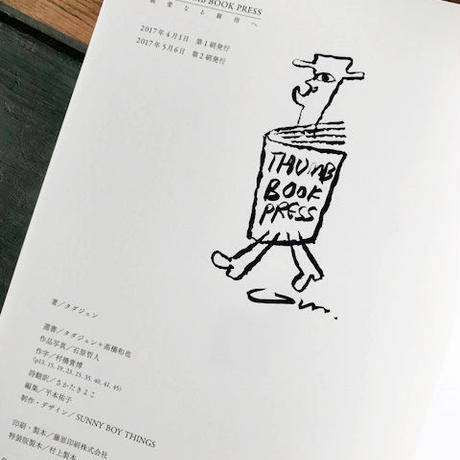 MB BOOK PRESS
親愛なる親指へ
2017年4月1日 第1刷発行
2017年5月6日 第2刷発行
THUMB
BOOK
PRESS
著／タダジュン
選書／タダジュン＋高橋和也
作品写真／石原哲人
作字／村橋貴博
(p13, 15, 19, 23, 25, 35, 40, 41, 45)
詩翻訳／さかたきよこ
編集／平本祐子
制作・デザイン／SUNNY BOY THINGS
印刷・製本／藤原印刷株式会社
特装版製本／村上製本